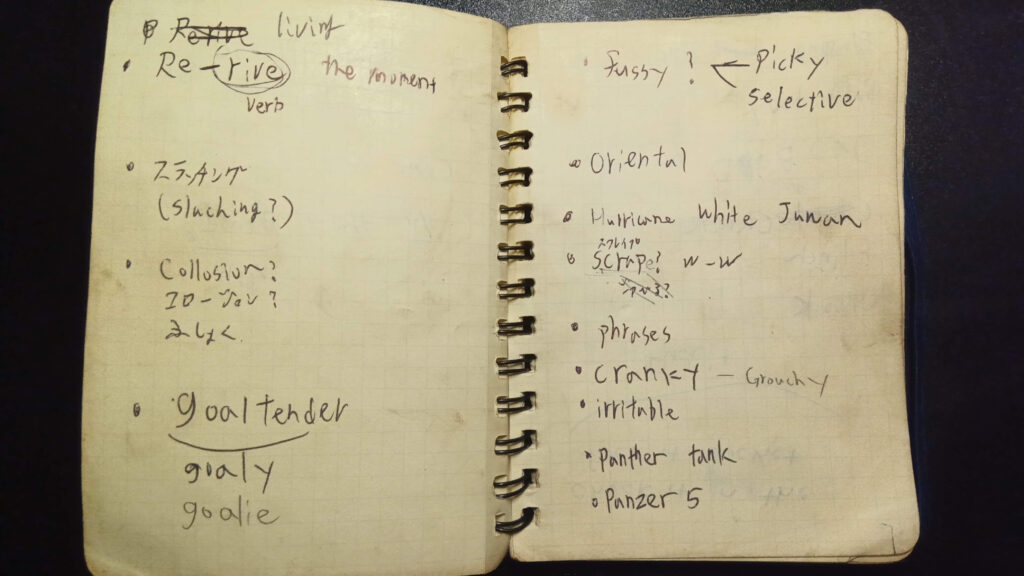 living
Re-rive the moment
verb
スラッチング
(sluching?)
Collosion?
エロージョン?
ましょく
goaltender
goaly
goalie
fussy? Picky
selective
Oriental
Hurricane White Junuan
スクレイプ
scrape? w-w
phrases
cranky - Grouchy
irritable
Panther tank
Panzer 5